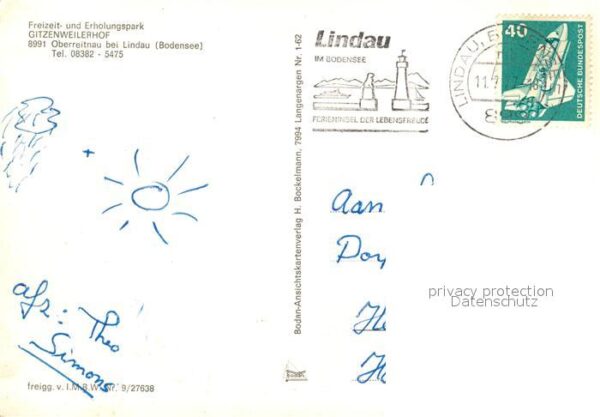 Freizeit- und Erholungspark
GITZENWEILERHOF
8991 Oberreitnau bei Lindau (Bodensee)
Tel. 08382 - 5475
+
afz: Theo
Simons
freigg. v. I.M.B.W. Nr. 9/27638
Bodan-Ansichtskartenverlag H. Bockelmann, 7994 Langenargen Nr. 1-62
Lindau
IM BODENSEE
FERIENINSEL DER LEBENSFREUDE
LINDAU,
11.
40
DEUTSCHE BUNDESPOST
Aan
privacy protection
Datenschutz